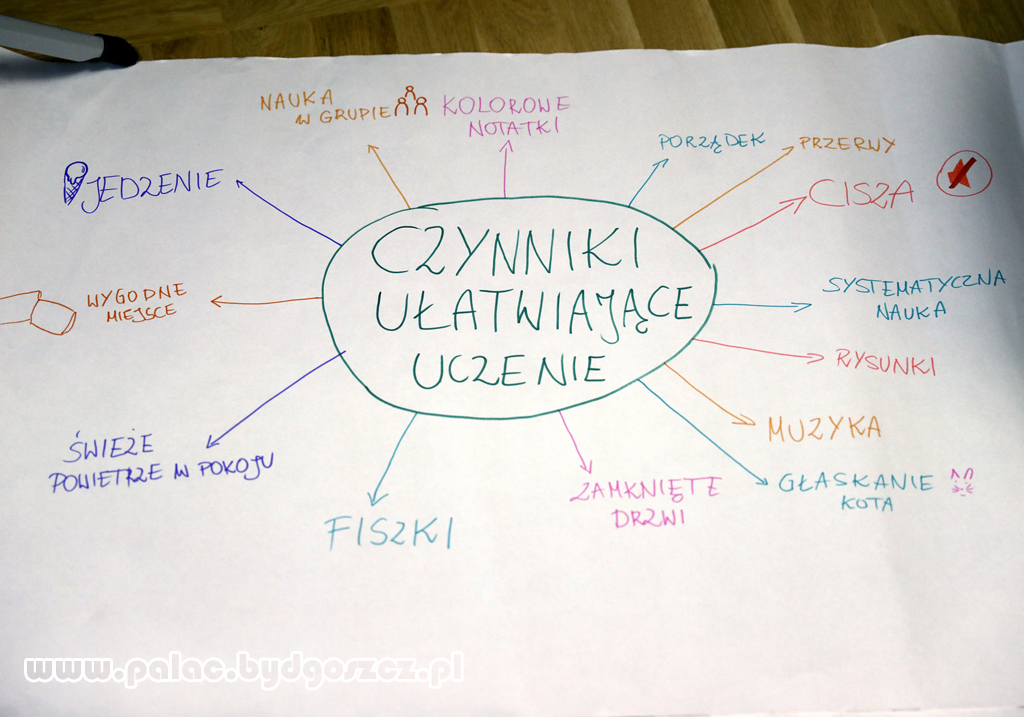 NAUKA
W GRUPIE
KOLOROWE
NOTATKI
PORZĄDEK
PRZERWY
CISZA
JEDZENIE
CZYNNIKI
UŁATWIAJĄCE
UCZENIE
WYGODNE
MIEJSCE
SYSTEMATYCZNA
NAUKA
RYSUNKI
MUZYKA
GŁASKANIE
KOTA
ŚWIEŻE
POWIETRZE W POKOJU
FISZKI
ZAMKNIĘTE
DRZWI
www.palac.bydgoszcz.pl